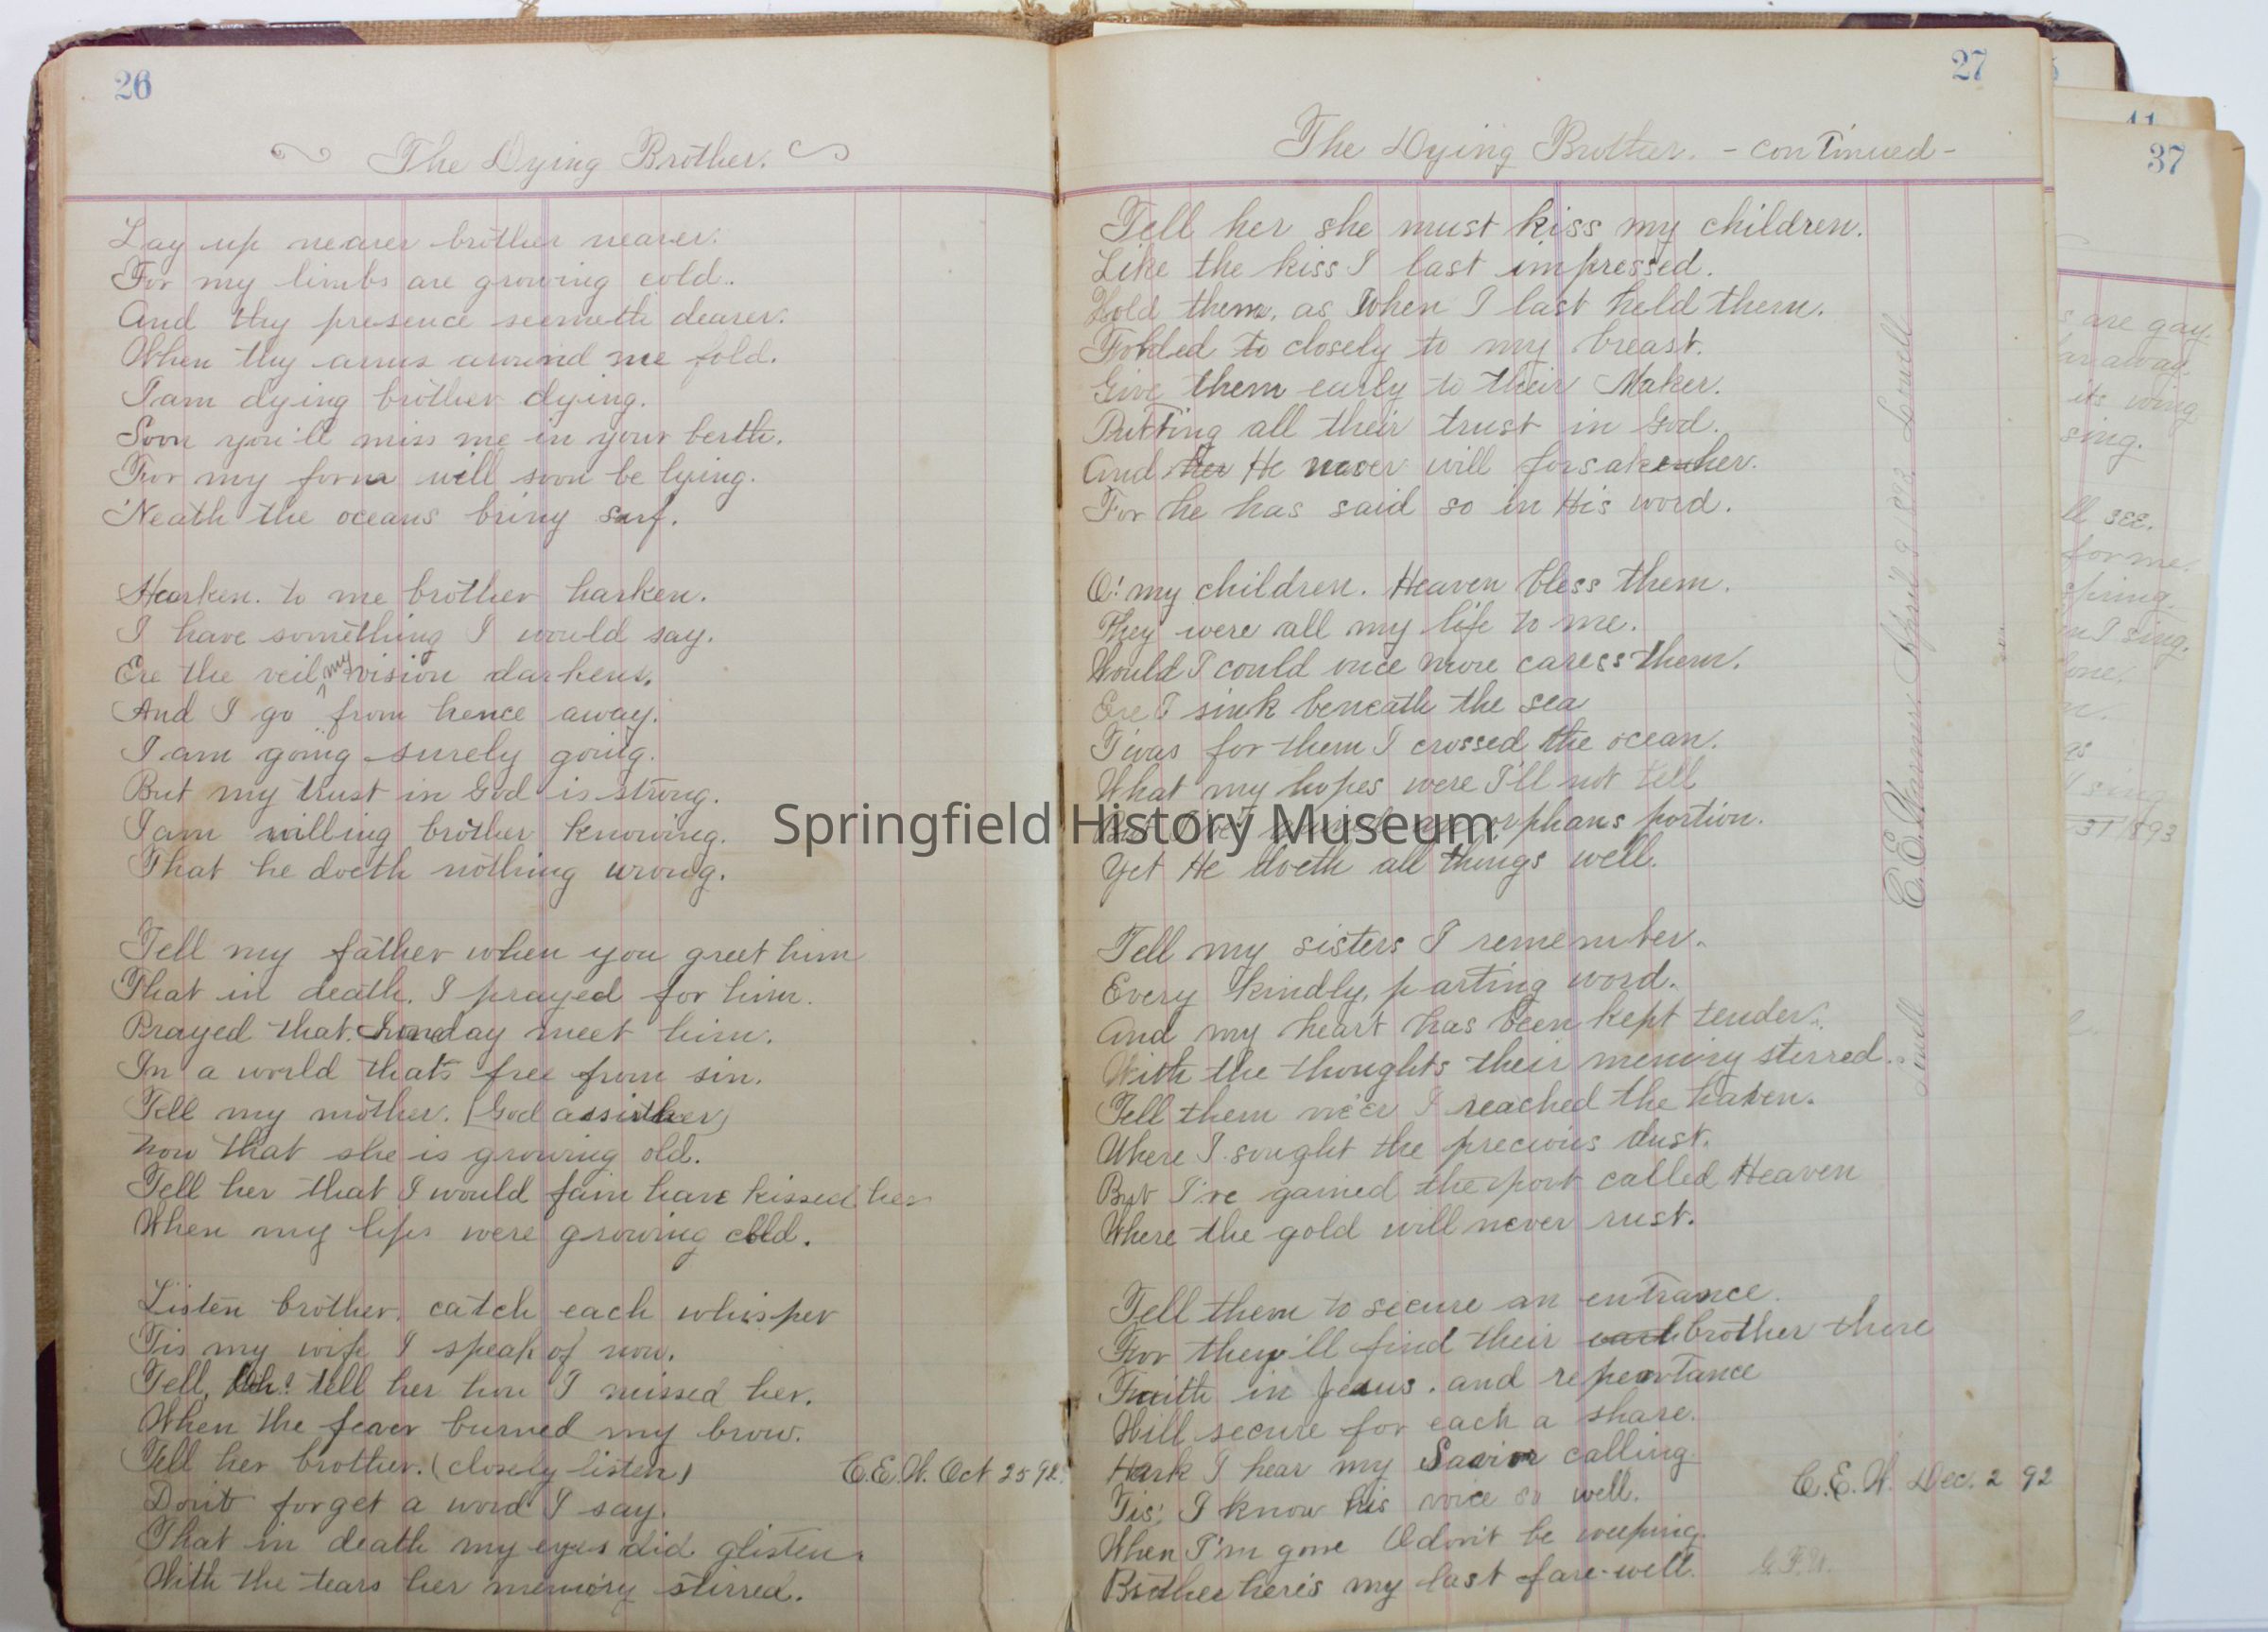 26
The Dying Brother.
Lay up nearer brother nearer.
For my limbs are growing cold.
And thy presence seemeth dearer.
When thy arms around me fold.
I am dying brother dying.
Soon you'll miss me in your berth.
For my form will soon be lying.
'Neath the oceans briny surf.
Hearken. to me brother harken.
I have something I would say.
Ere the veil my vision darkens.
And I go from hence away.
I am going surely going.
But my trust in God is strong.
I am willing brother knowing.
That he doeth nothing wrong.
Tell my father when you greet him
That in death. I prayed for him.
Prayed that I may meet him.
In a world thats free from sin.
Tell my mother. (God assist her)
now that she is growing old.
Tell her that I would fain have kissed her
When my lips were growing cold.
Listen brother. catch each whisper
Tis my wife I speak of now.
Tell, Oh! tell her how I missed her.
When the fever burned my brow.
Tell her brother. (closely listen)
C.E.W. Oct 25 92.
Don't forget a word I say.
That in death my eyes did glisten.
With the tears her memory stirred.
27
The Dying Brother. - continued -
Tell her she must kiss my children.
Like the kiss I last impressed.
Hold them, as when I last held them.
Folded to closely to my breast.
Give them early to their Maker.
Putting all their trust in God.
And her He never will forsake her.
For he has said so in His word.
O! my children. Heaven bless them.
They were all my life to me.
Would I could once more caress them.
Ere I sink beneath the sea
Twas for them I crossed the ocean.
What my hopes were I'll not tell
orphans portion.
Yet He doeth all things well.
Tell my sisters I remember.
Every kindly, parting word.
And my heart has been kept tender.
With the thoughts their memory stirred.
Tell them ne'er I reached the haven.
Where I sought the precious dust.
But I've gained the port called Heaven
Where the gold will never rust.
Tell them to secure an entrance.
For they'll find their brother there
Faith in Jesus. and repentance
Will secure for each a share.
Hark I hear my Savior calling
Tis; I know his voice so well.
C.E.W. Dec. 2 92
When I'm gone O don't be weeping.
Brother here's my last fare-well.
C.E. Warner April 9 1892 Lowell
41
37
s are gay.
far away.
its wing
sing.
ll see.
for me.
spring.
n I sing.
31 1893
Springfield History Museum